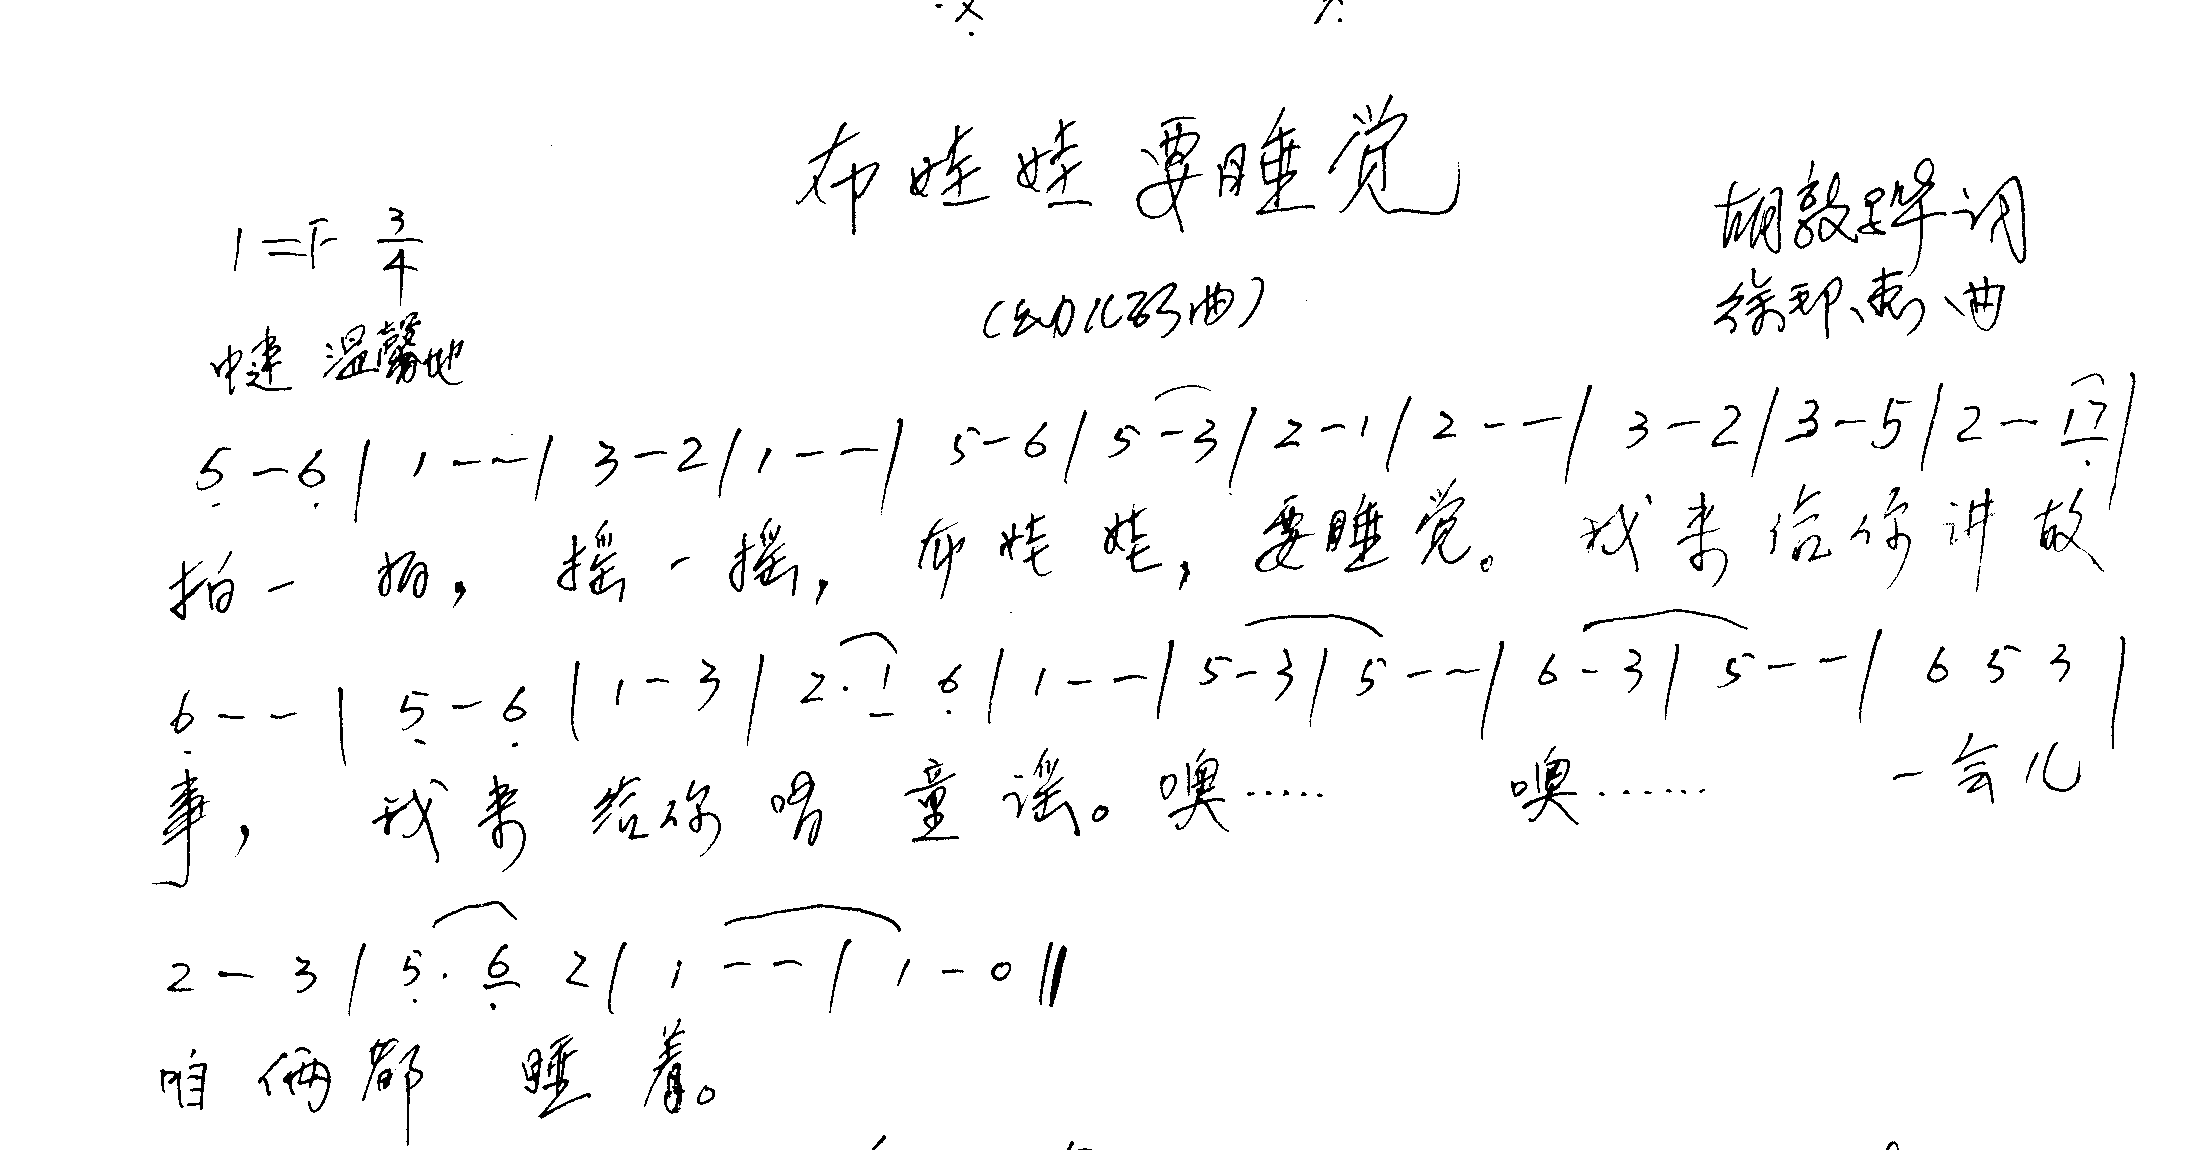 布娃娃要睡觉
1=F 3/4
胡敦骅词
(幼儿歌曲)
徐邦惠曲
中速 温馨地
5̣ - 6̣ | 1 - - | 3 - 2 | 1 - - | 5 - 6 | 5 - 3 | 2 - 1 | 2 - - | 3 - 2 | 3 - 5 | 2 - 1 7̣ |
拍一拍，摇一摇，布娃娃，要睡觉。我来给你讲故
6̣ - - | 5̣ - 6̣ | 1 - 3 | 2. 1 6̣ | 1 - - | 5 - 3 | 5 - - | 6 - 3 | 5 - - | 6 5 3 |
事，我来给你唱童谣。噢…… 噢…… 一会儿
2 - 3 | 5̣. 6̣ 2 | 1 - - | 1 - 0 ‖
咱俩都睡着。